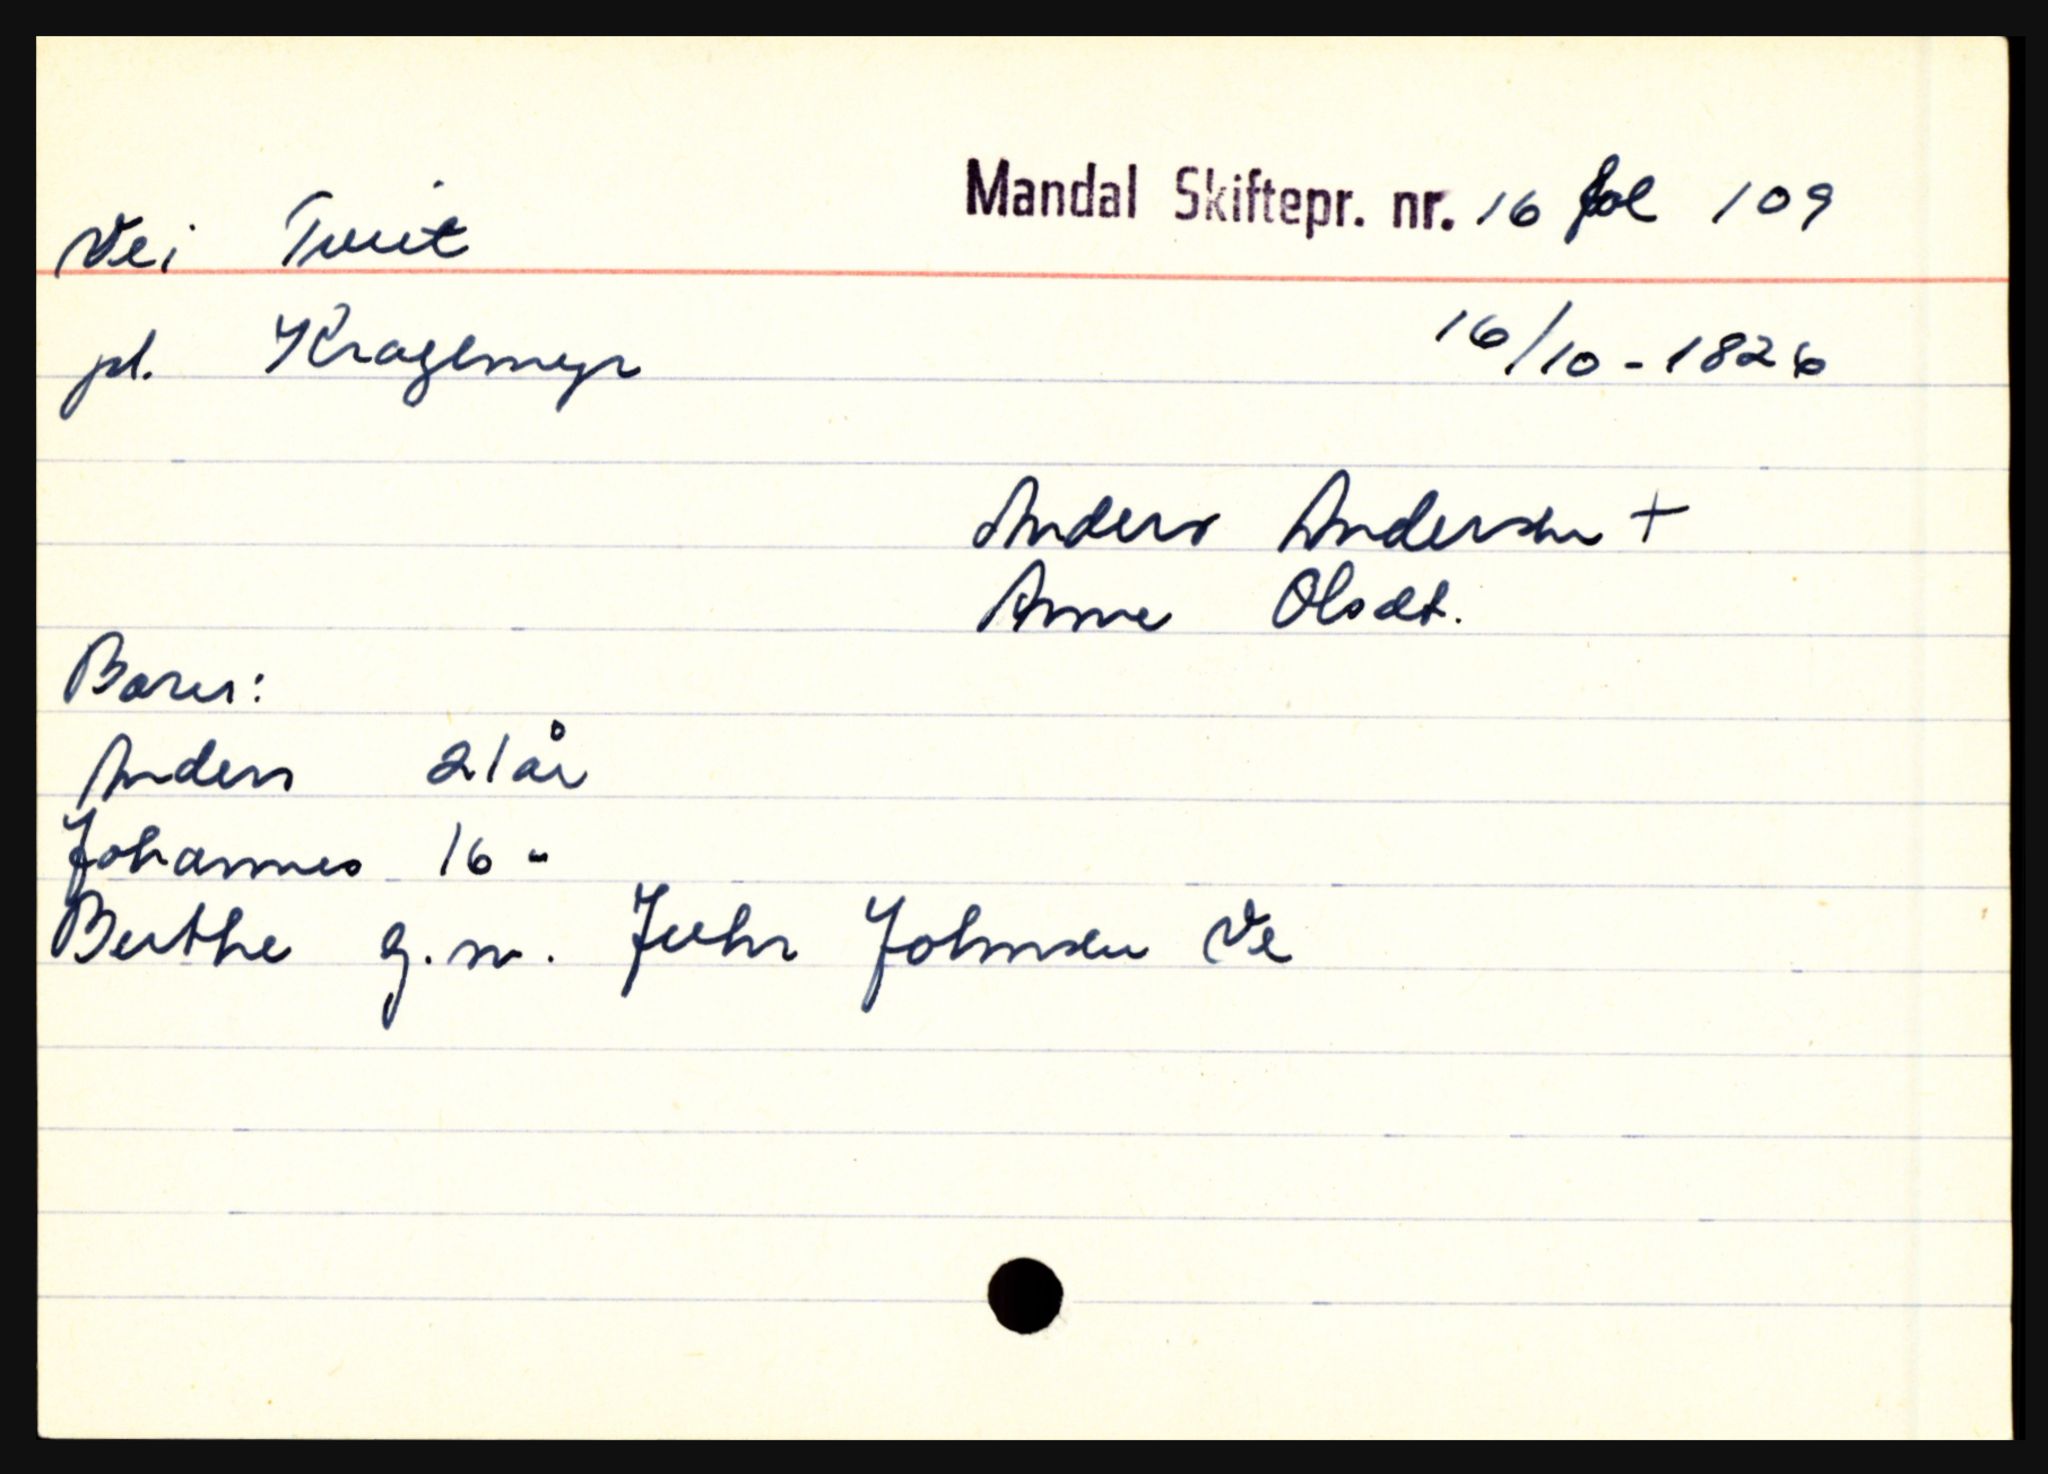 Vei Tveit Mandal Skiftepr. nr. 16 fol 109
pl. Kraglmyr 16/10-1826
Anders Andersen +
Anne Olsdt.
Barn:
Anders 21 år
Johannes 16 "
Berthe g.m. Johnsen Ve